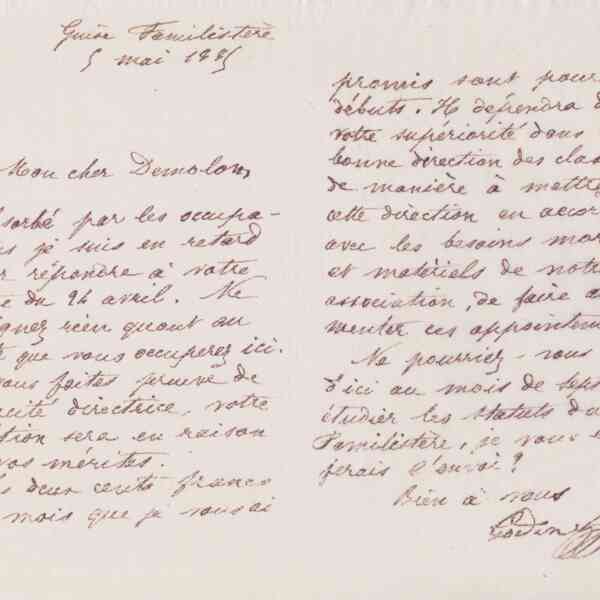 Guise Familistère
5 mai 1885
Mon cher Demolon,
sorbé par les occupa-
s je suis en retard
r répondre à votre
e du 24 avril. Ne
ignez rien quant au
que vous occuperez ici.
ous faites preuve de
acité directrice, votre
tion sera en raison
vos mérites.
s deux cents francs
mois que je vous ai
promis sont pour
débuts. Il dépendra d
votre supériorité dans
bonne direction des clas
de manière à mettre
cette direction en accor
avec les besoins mor
et matériels de notre
association, de faire au
menter ces appointem
Ne pourriez-vous
d'ici au mois de sep
étudier les statuts du
Familistère, je vous e
ferais l'envoi?
Bien à vous
Godin